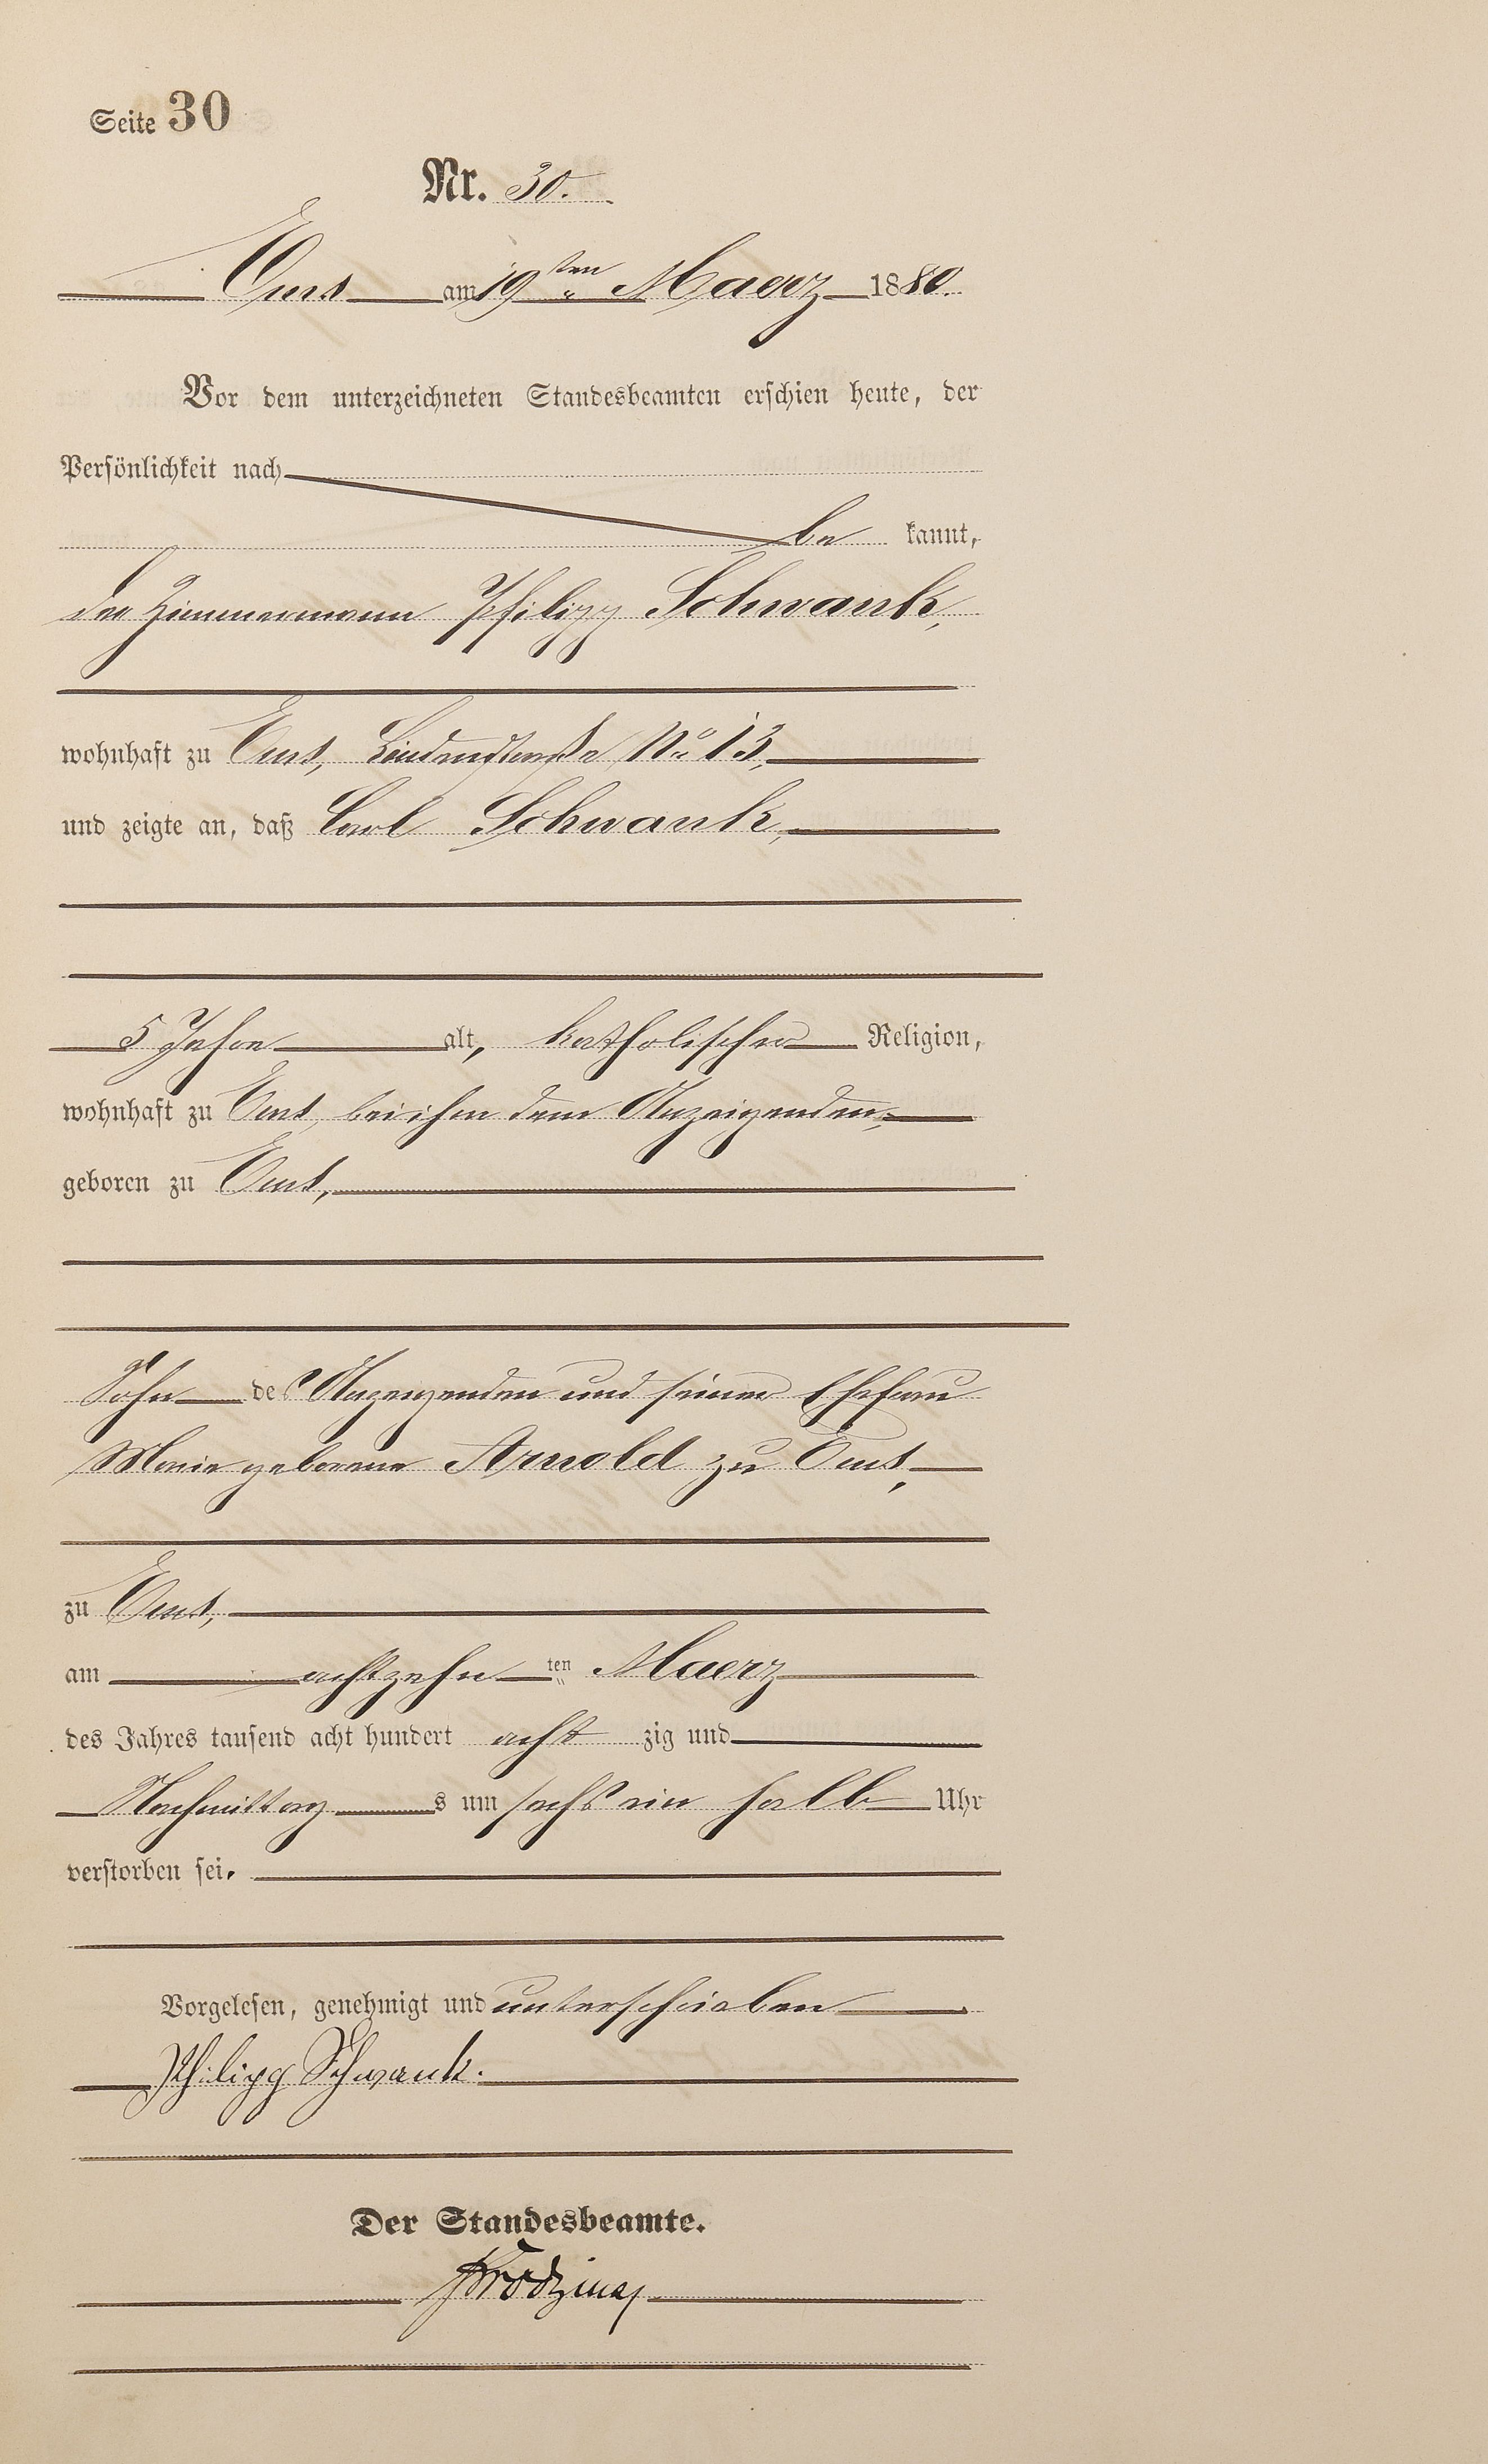 Seite 30
Nr. 30.
Ems am 19ten Maerz 1880.
Vor dem unterzeichneten Standesbeamten erschien heute, der
Persönlichkeit nach
be kannt,
der Zimmermann Philipp Schwank,
wohnhaft zu Ems, Lindenstraße No 13,
und zeigte an, daß Carl Schwank,
5 Jahre alt, katholischer Religion,
wohnhaft zu Ems, bei ihm dem Anzeigenden,
geboren zu Ems,
Sohn des Anzeigenden und seiner Ehefrau
Marie geborene Arnold zu Ems,
zu Ems,
am achtzehn ten Maerz
des Jahres tausend acht hundert acht zig und
Nachmittag s um sechs ein halb Uhr
verstorben sei.
Vorgelesen, genehmigt und unterschrieben
Philipp Schwank.
Der Standesbeamte.